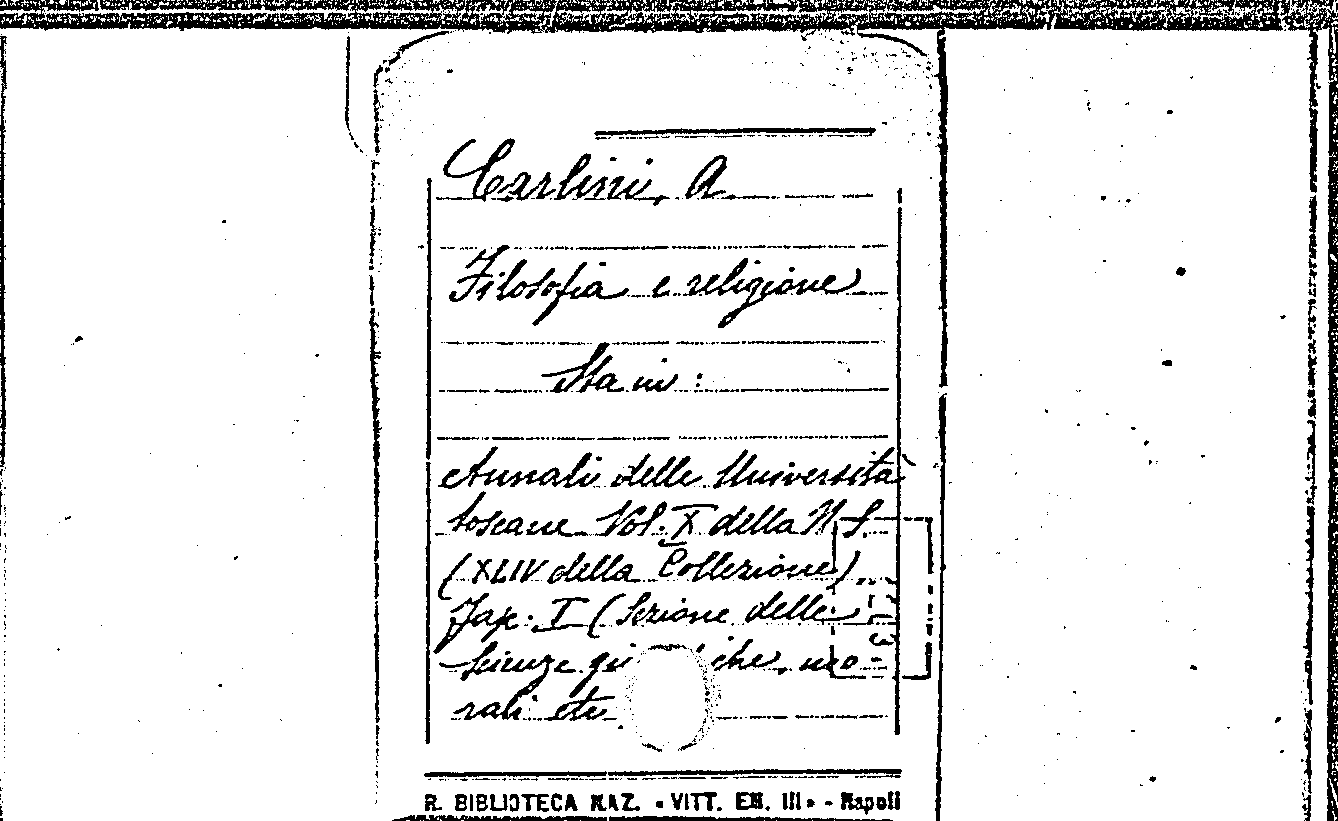 Carlini, A.
Filosofia e religione
Sta in:
Annali delle Università
toscane Vol. X della N. S.
(XLIV della Collezione)
Fasc. I (Sezione delle
Scienze mo-
rali etc
R. BIBLIOTECA NAZ. « VITT. EM. III » - Napoli